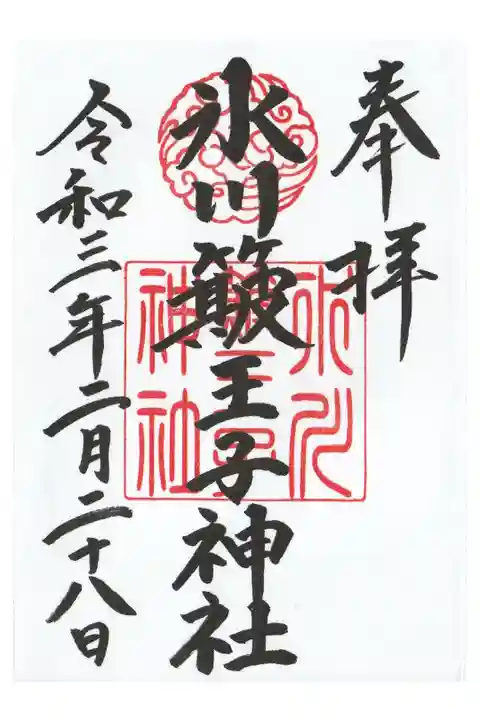 奉拝
氷川簸王子神社
令和三年二月二十八日
氷川
神社